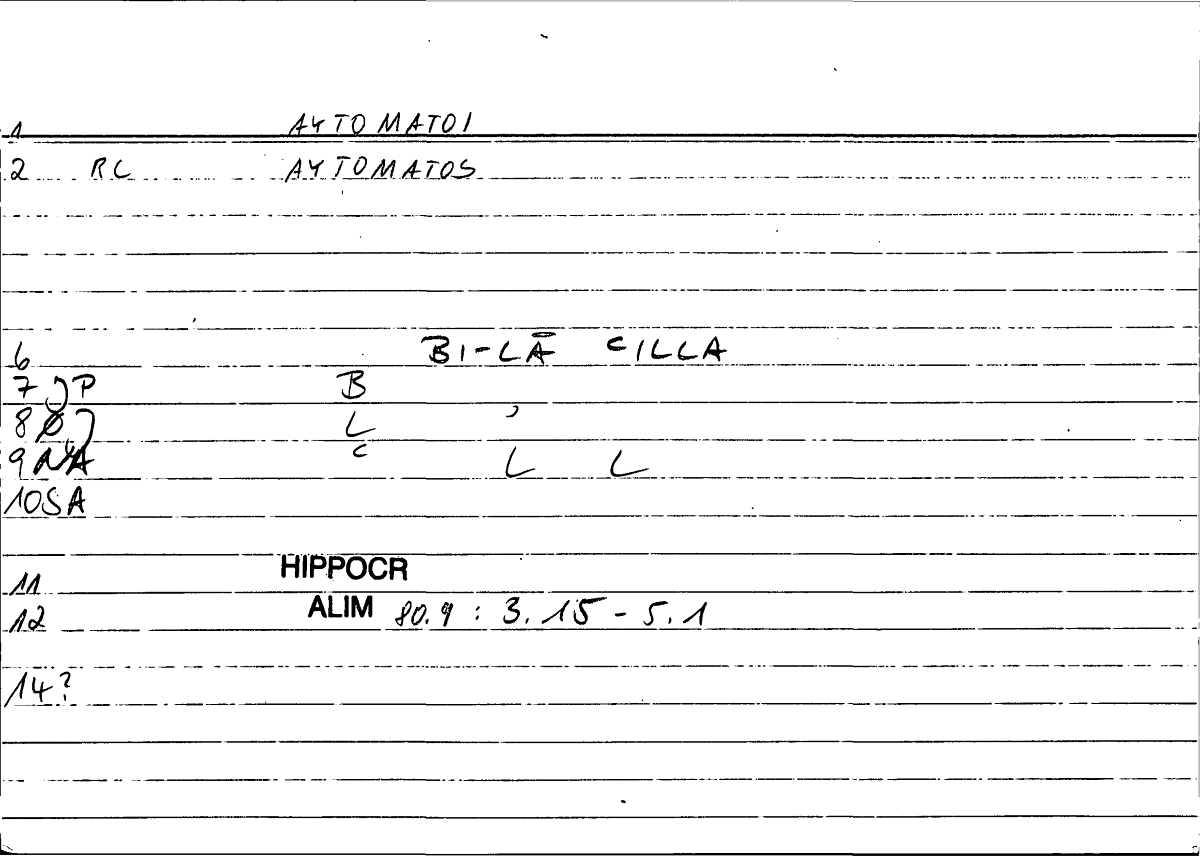 1 AYTOMATOI
2 RC AYTOMATOS
6 BI-LĀ cILLA
7 P B
8 L ʾ
9 A c L L
10 SA
11 HIPPOCR
12 ALIM 80.9 : 3.15 - 5.1
14?